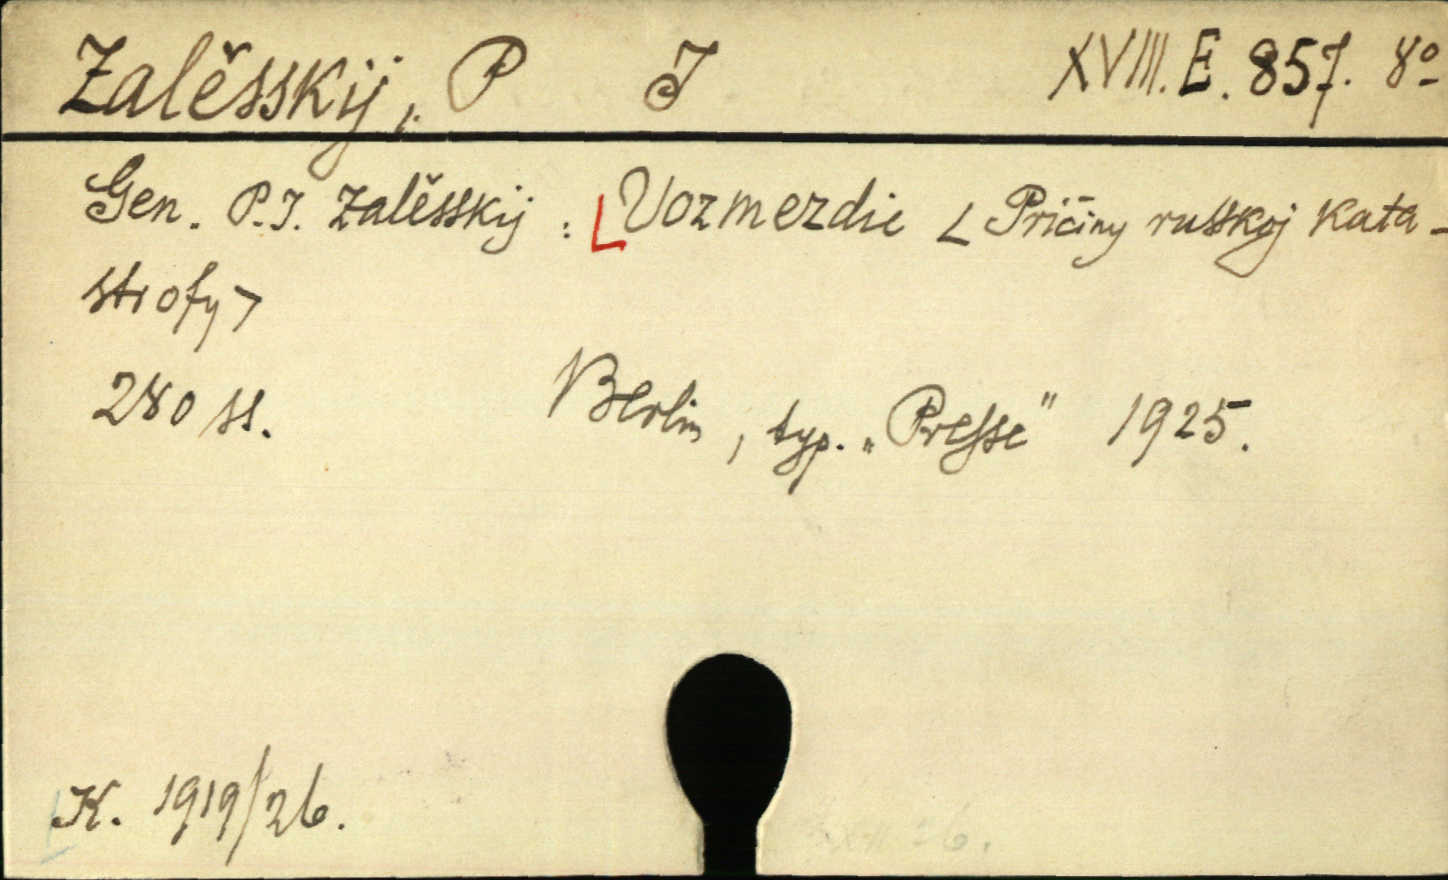 Zalěsskij, P J XVIII. E. 857. 8º
Gen. P.J. Zalěsskij : Vozmezdie < Pričiny russkoj kata-
strofy >
280 ss. Berlin, typ. „Presse" 1925.
K. 1919/26.